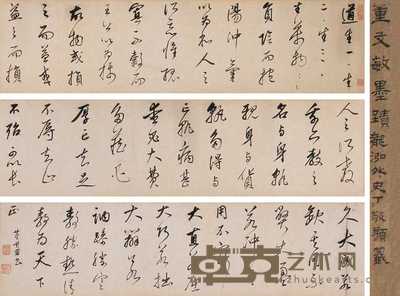 董文敏墨蹟龍泓外史丁敬題籤
道生一一生
二二生三三
生萬物萬物
負陰而抱
陽沖氣
以為和人之
所惡惟孤
寡不穀而
王公以為稱
故物或損
之而益或
益之而損
人之所教
亦我教之
名與身孰
親身與貨
孰多得與
亡孰病甚
愛必大費
多藏必
厚亡知足
不辱知止
不殆可以長
久大成若
缺其用不
弊大盈
若沖其
用不窮
大直若屈
大巧若拙
大辯若
訥躁勝寒
靜勝熱清
靜為天下
正
董其昌書
艺术网